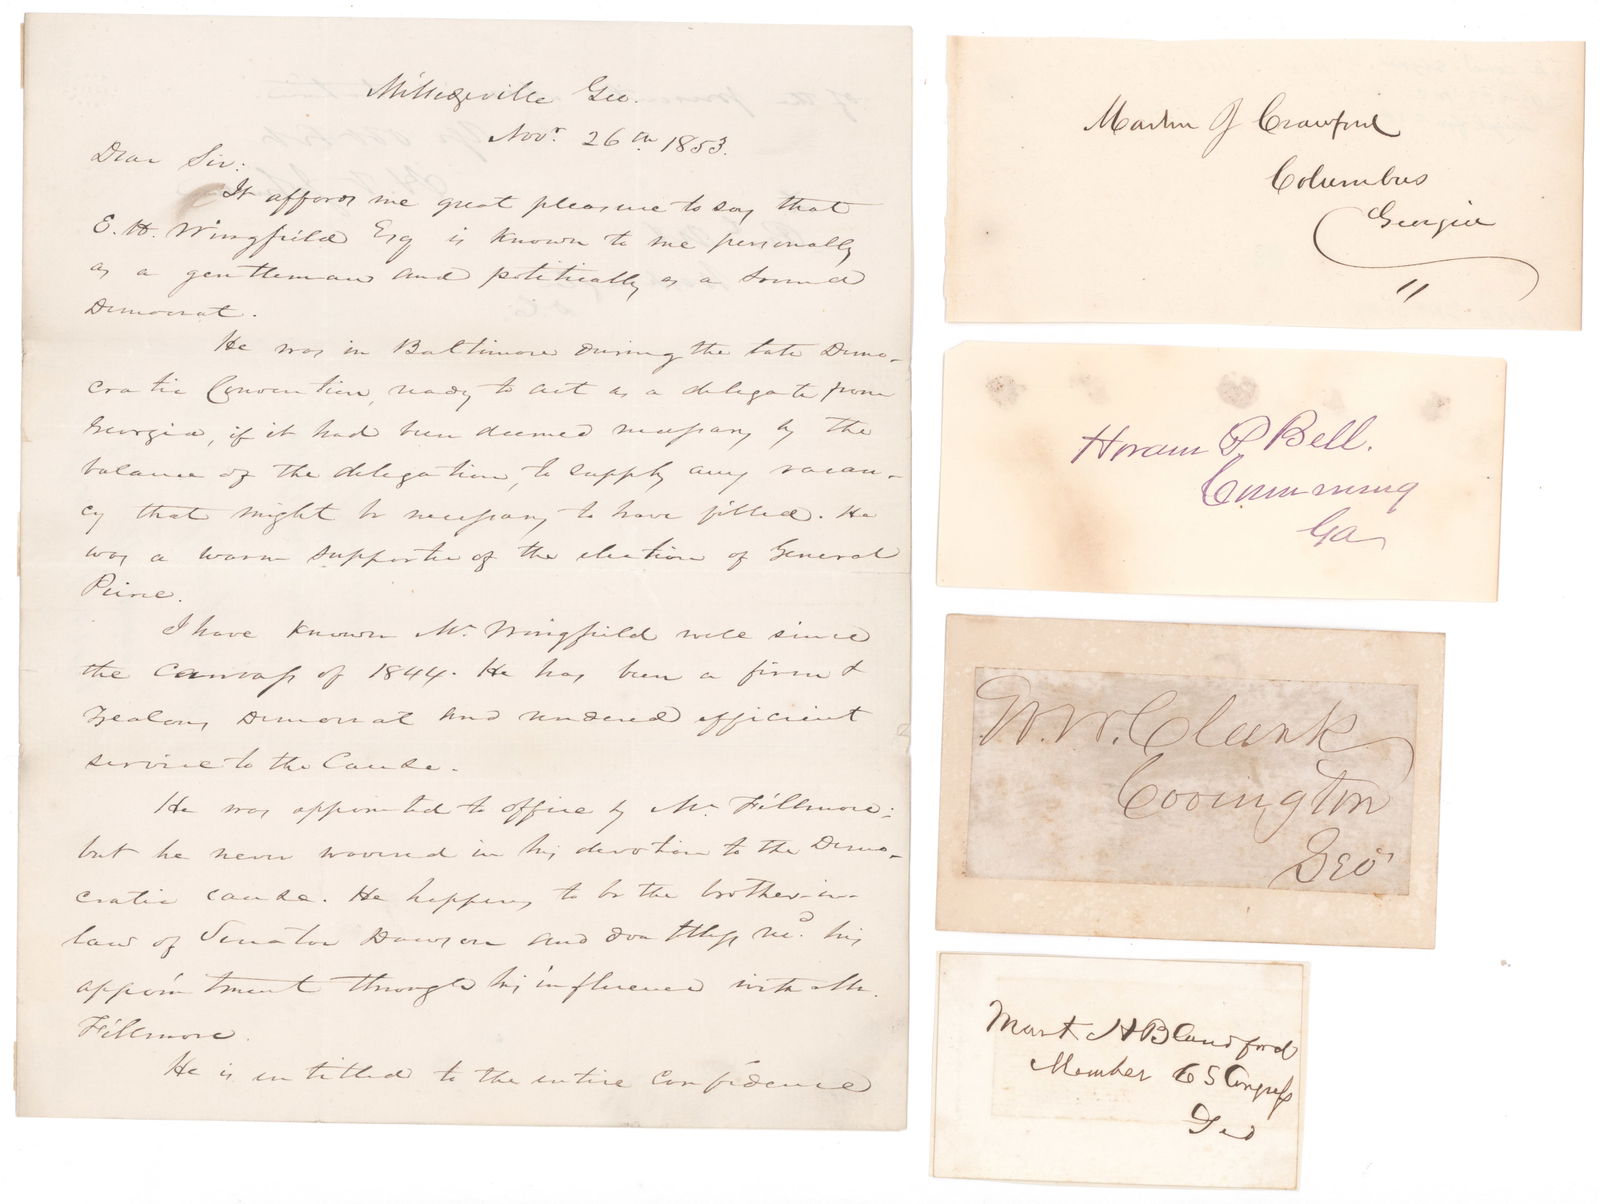 Milledgeville Geo.
Novr. 26th 1853.
Dear Sir:
It affords me great pleasure to say that
E. H. Wingfield Esq is known to me personally
as a gentleman and politically as a sound
Democrat.
He was in Baltimore during the late Demo-
cratic Convention, ready to act as a delegate from
Georgia, if it had been deemed necessary by the
balance of the delegation, to supply any vacan-
cy that might be necessary to have filled. He
was a warm supporter of the election of General
Pierce.
I have known Mr. Wingfield well since
the canvass of 1844. He has been a firm &
zealous Democrat and rendered efficient
service to the Cause.
He was appointed to office by Mr. Fillmore;
but he never wavered in his devotion to the Demo-
cratic cause. He happens to be the brother-in-
law of Senator Dawson and doubtless recd. his
appointment through his influence with Mr.
Fillmore.
He is entitled to the entire confidence
Martin J Crawford
Columbus
Georgia
Hiram P Bell.
Cumming
Ga
W. W. Clark
Covington
Geo
Mark H Blandford
Member C S Congress
Geo